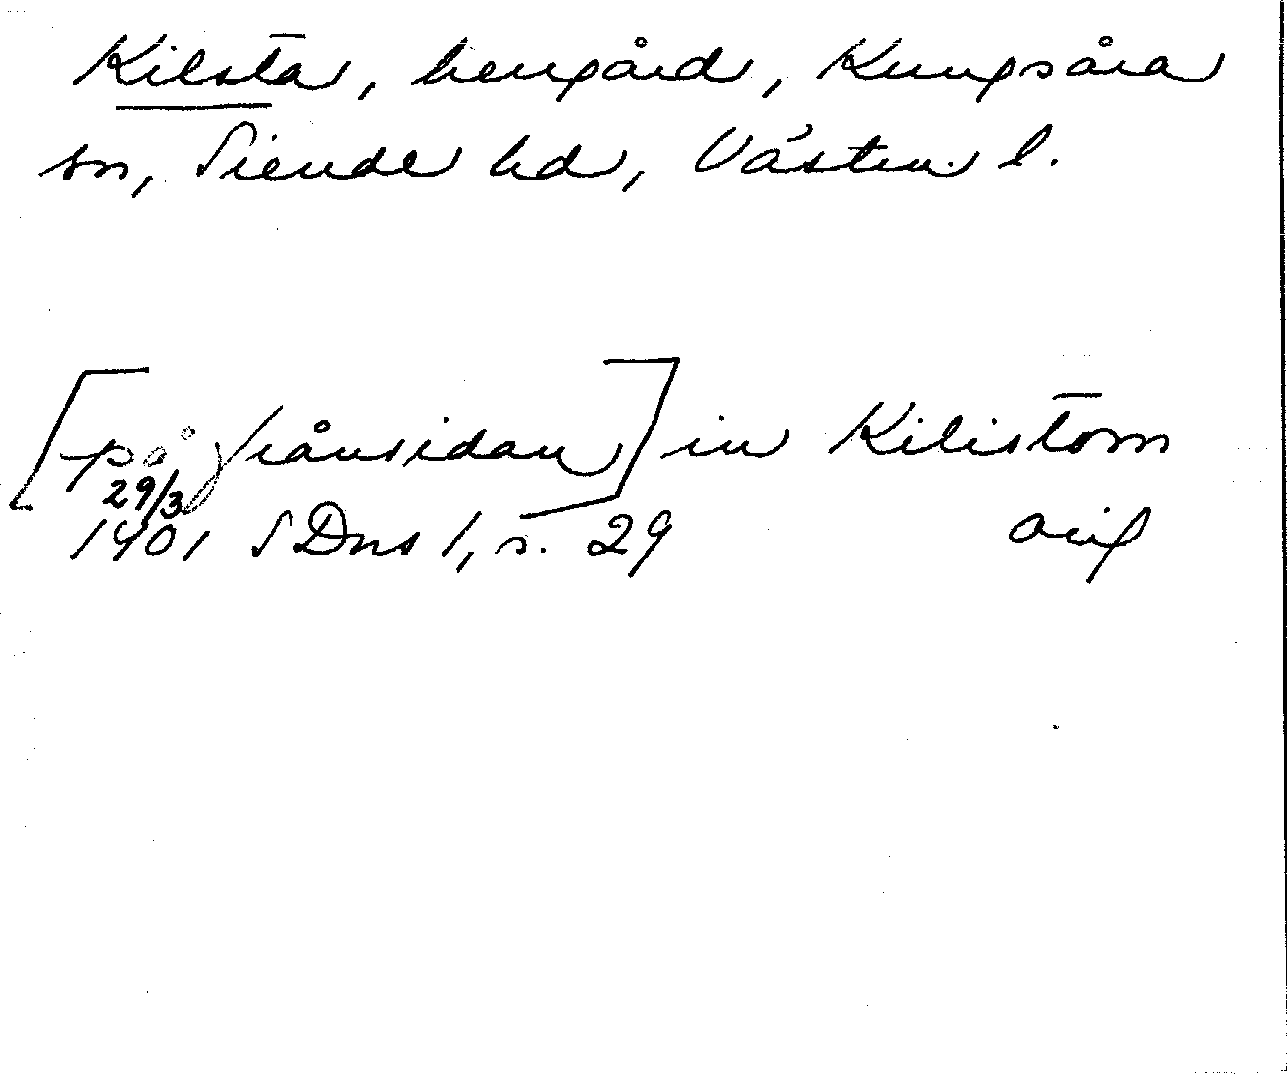 Kilsta, herrgård, Kungsåra
sn, Siende hd, Västm. l.
[på frånsidan] in Kilistom
29/3
1401 SDns 1, s. 29 orig